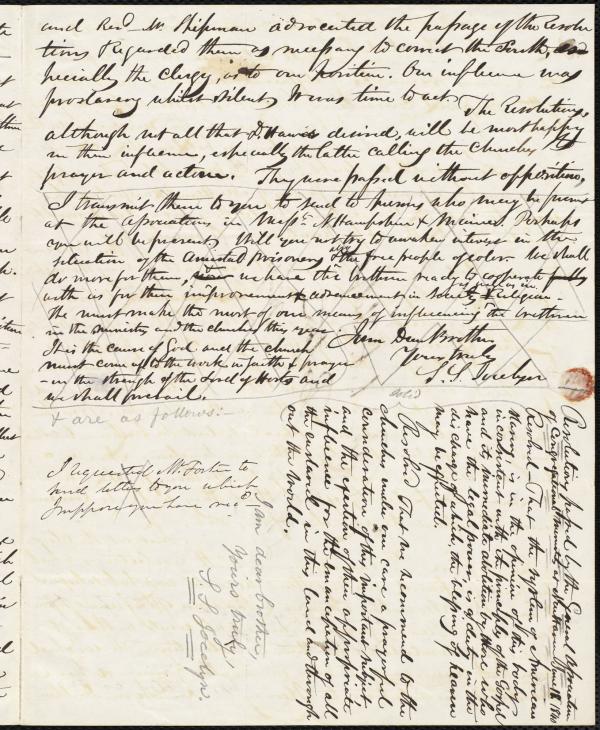 and Revd Mr. Shipman advocated the passage of the Resolu
tions & regarded them as necessary to correct the South, es
pecially the clergy, as to our position. Our influence was
proslavery whilst silent, It was time to act. The Resolutions,
although not all that D. Hawes desired, will be most happy
in their influence, especially the latter calling the Churches to
prayer and action. They were passed without opposition,
I transmit them to you to send to persons who may be present
at the associations in Mass. N Hampshire & Maine. Perhaps
you will be present. Will you not try to awaken interest in the
situation of the Amistad Prisoners & the free people of color. We shall
do more for them, we have the brethren ready to cooperate
with us for their improvement & advancement in Society & religion.
We must make the most of our means of influencing the brethren
in the ministry and the churches this year.
It is the cause of God and the church
must come up to the work in faith & prayer
- in the strength of the Lord of Hosts and
we shall prevail.
I am Dear Brother
Yours truly
S. S. Jocelyn
& are as follows:-
I requested Mr. Foster to
send letter to you which
I suppose you have recd-
I am dear brother,
Yours truly,
S. S. Jocelyn.
Resolutions passed by the General Association
of Congregational Ministers June 1840
Resolved - That the system of American
Slavery is in the opinion of this body
inconsistent with the principles of the Gospel
and its immediate abolition by those who
have the legal power, is a duty in the
discharge of which, the blessing of heaven
may be expected.
Resolved That we recommend to the
churches under our care a prayerful
consideration of this important subject
and the exertion of their appropriate
influence for the emancipation of all
the enslaved in this land and through
out the world.